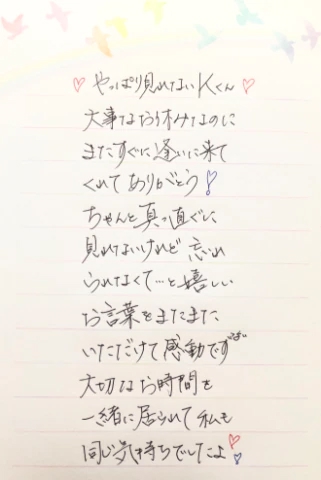 ♡ やっぱり見れないKくん ♡
大事なお休みなのに
またすぐに逢いに来て
くれてありがとう!
ちゃんと真っ直ぐに
見れないけれど 忘れ
られなくて…と嬉しい
お言葉をまたまた
いただけて感動です
大切なお時間を
一緒に居られて私も
同じ気持ちでしたよ♡